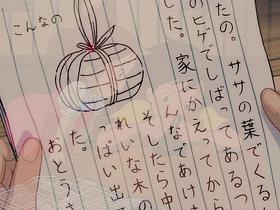 たの。ササの葉でくる
のヒゲでしばってあるつ
した。家にかえってから
んなであけ
そしたら中
れいな木の
っぱい出
た。
おとうさ
こんなの